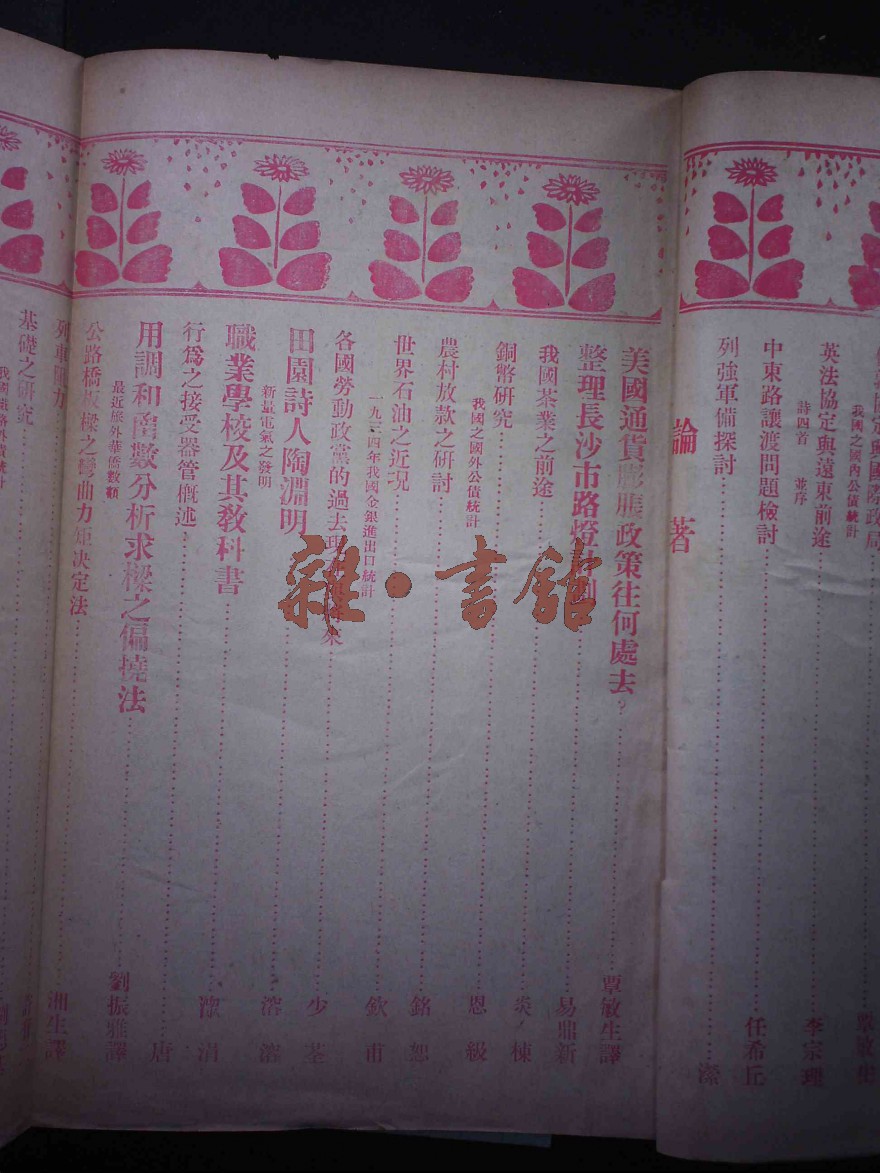 論著
我國之國內公債統計
英法協定與遠東前途
李宗理
詩四首 並序
中東路讓渡問題檢討
任希丘
列強軍備探討
潔
美國通貨膨脹政策往何處去?
覃敏生譯
整理長沙市路燈
易鼎新
我國茶業之前途
炎棟
銅幣研究
恩級
我國之國外公債統計
農村放款之研討
銘恕
世界石油之近況
欽甫
一九三四年我國金銀進出口統計
各國勞動政黨的過去現
來
少荃
田園詩人陶淵明
溶溶
新量電氣之發明
職業學校及其教科書
清
行為之接受器官概述
唐
用調和函數分析求樑之偏撓法
劉振雅譯
最近旅外華僑數額
公路橋板樑之彎曲力矩決定法
洲生譯
列車阻力
基礎之研究
雜·書館